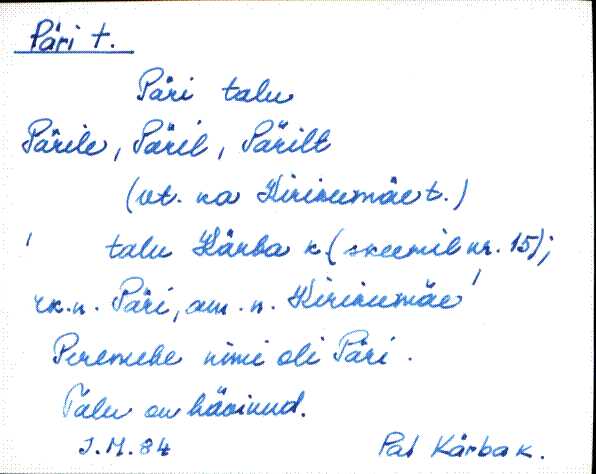 Päri t.
Päri talu
Pärile, Päril, Pärilt
(vt. ka Kirikumäe t.)
' talu Kärba k. (skeemil nr. 15);
rk.n. Päri, am.n. Kirikumäe'
Peremehe nimi oli Päri.
Talu on hävinud.
J.M. 84 Pal Kärba k.